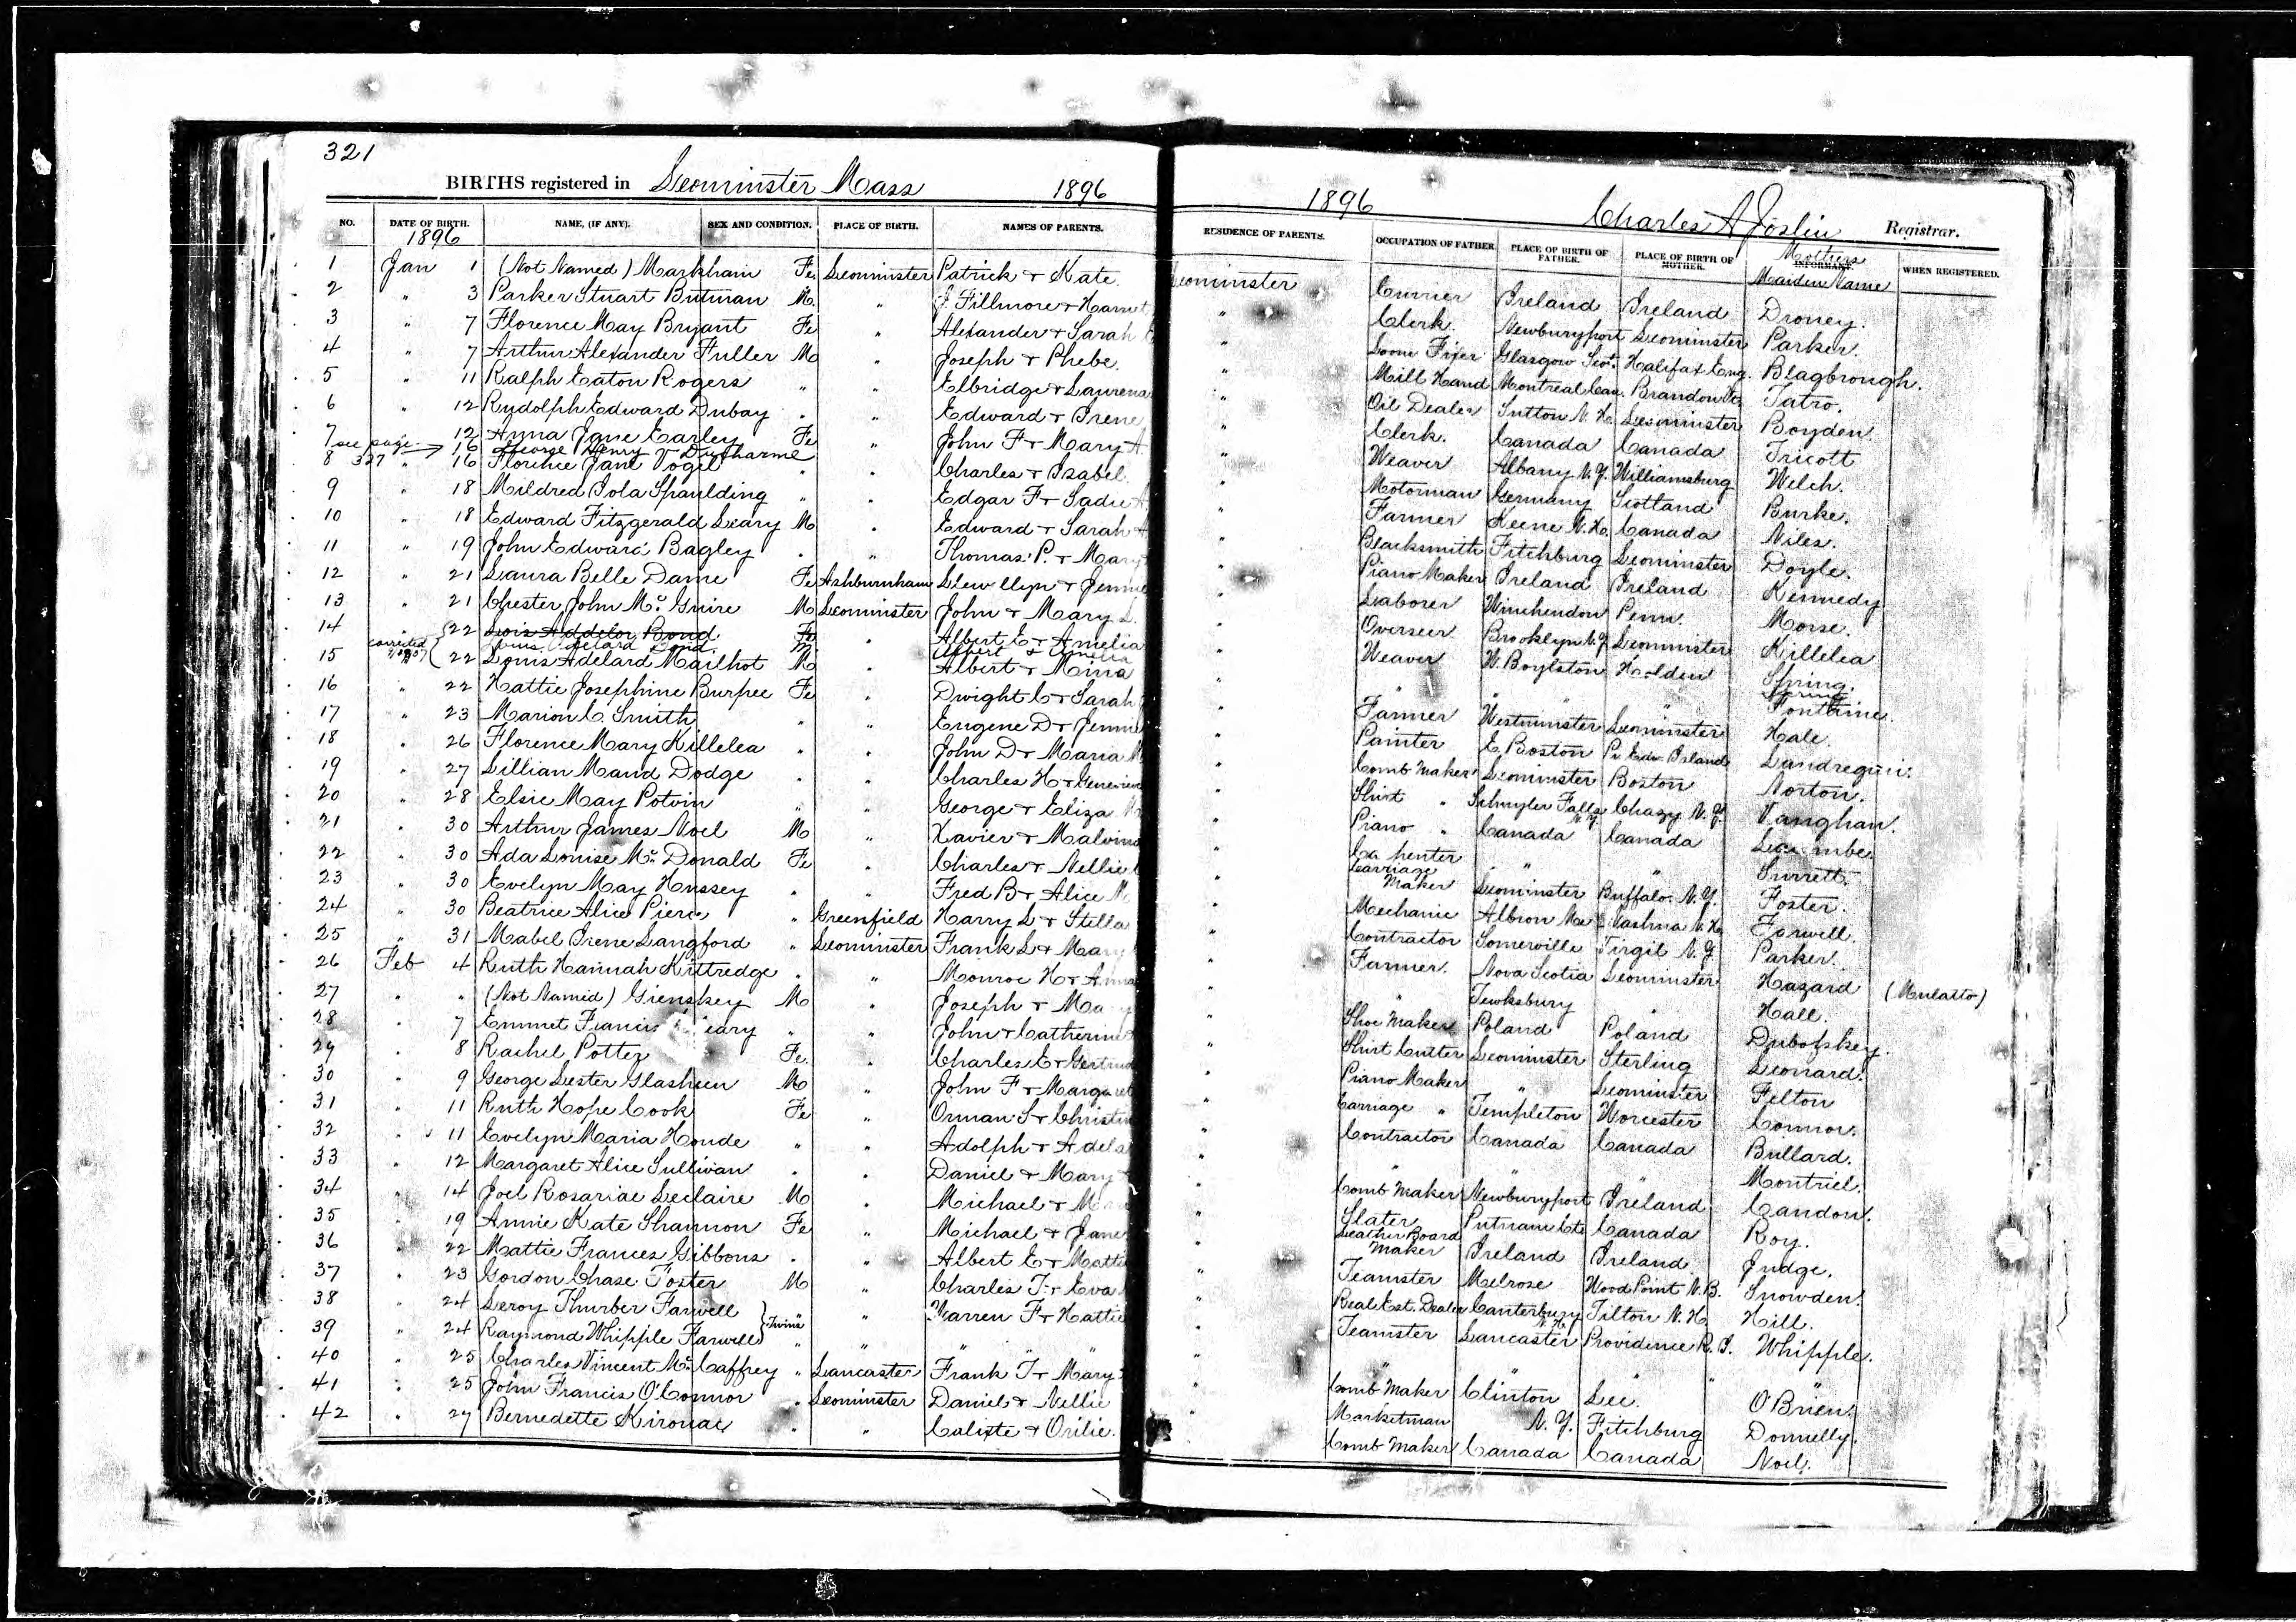 321
BIRTHS registered in Leominster Mass 1896
NO. DATE OF BIRTH. NAME, (IF ANY). SEX AND CONDITION. PLACE OF BIRTH. NAMES OF PARENTS.
1896
1 Jan 1 (Not Named) Markham Fe. Leominster Patrick + Kate.
2 " 3 Parker Stuart Butman M. " J. Fillmore + Harriet
3 " 7 Florence May Bryant Fe " Alexander + Sarah
4 " 7 Arthur Alexander Fuller M " Joseph + Phebe.
5 " 11 Ralph Eaton Rogers " " Elbridge + Laurena
6 " 12 Rudolph Edward Dubay " " Edward + Irene
7 " 12 Anna Jane Earley Fe " John F + Mary A.
see page 327 → 16 George Henry Ducharme
8 " 16 Florence Jane Vogel " " Charles + Isabel.
9 " 18 Mildred Iola Spaulding " " Edgar F + Sadie A.
10 " 18 Edward Fitzgerald Leary M " Edward + Sarah
11 " 19 John Edward Bagley " " Thomas P. + Mary
12 " 21 Laura Belle Dame Fe Ashburnham Llewllyn + Jennie
13 " 21 Chester John Mc Guire M Leominster John + Mary L.
14 " 22 Lois Addelor Bond Fe " Albert E + Amelia
corrected Louis Adelard Bond M. Albert + Amelia
15 22 Louis Adelard Mailhot M " Albert + Mina
16 " 22 Hattie Josephine Burpee Fe " Dwight C + Sarah
17 " 23 Marion C. Smith " " Eugene D + Jennie
18 " 26 Florence Mary Killelea " " John D + Maria M
19 " 27 Lillian Maud Dodge " " Charles H + Genevieve
20 " 28 Elsie May Potvin " " George + Eliza
21 " 30 Arthur James Noel M " Xavier + Malvina
22 " 30 Ada Louise Mc Donald Fe " Charles + Nellie
23 " 30 Evelyn May Hussey " " Fred B + Alice
24 " 30 Beatrice Alice Pierce " Greenfield Harry L + Stella
25 " 31 Mabel Irene Langford " Leominster Frank L + Mary
26 Feb 4 Ruth Hannah Kittredge " " Monroe H + Anna
27 " " (Not Named) Gienskey M " Joseph + Mary
28 " 7 Emmet Francis " " John + Catherine
29 " 8 Rachel Potter Fe. " Charles E + Gertrude
30 " 9 George Lester Glasheen M " John F + Margaret
31 " 11 Ruth Hope Cook Fe " Orman S + Christin
32 " 11 Evelyn Maria Houde " " Adolph + Adela
33 " 12 Margaret Alice Sullivan " " Daniel + Mary
34 " 14 Joel Rosariae Leclaire M " Michael +
35 " 19 Annie Kate Shannon Fe " Michael + Jane
36 " 22 Mattie Frances Gibbons " " Albert E + Mattie
37 " 23 Gordon Chase Foster M " Charles T + Eva
38 " 24 Leroy Thurber Farwell } " " Warren F + Hattie
39 " 24 Raymond Whipple Farwell } Twins " " " "
40 " 25 Charles Vincent Mc Caffrey " Lancaster Frank T + Mary
41 " 25 John Francis O'Connor " Leominster Daniel + Nellie
42 " 27 Bernedette Kirouac " " Calixte + Orilie.
1896 Charles A Joslin Registrar.
RESIDENCE OF PARENTS. OCCUPATION OF FATHER. PLACE OF BIRTH OF FATHER. PLACE OF BIRTH OF MOTHER. INFORMANT. Mothers Maiden Name WHEN REGISTERED.
Leominster Currier Ireland Ireland Droney.
" Clerk. Newburyport Leominster Parker.
" Loom Fixer Glasgow Scot. Halifax Eng. Blagbrough.
" Mill Hand Montreal Can. Brandon Vt. Tatro.
" Oil Dealer Sutton N.H. Leominster Boyden.
" Clerk. Canada Canada Tricott
" Weaver Albany N.Y. Williamsburg Welch.
" Motorman Germany Scotland Burke.
" Farmer Keene N.H. Canada Niles.
" Blacksmith Fitchburg Leominster Doyle.
" Piano Maker Ireland Ireland Kennedy
" Laborer Winchendon Penn. Morse.
" Overseer Brooklyn N.Y. Leominster Killelea
" Weaver W. Boylston Holden Spring.
Spring
" " " " Fontaine.
" Farmer Westminster Leominster Hale.
" Painter E. Boston Pr. Edw. Island Landregan.
" Comb Maker Leominster Boston Norton.
" Shirt " Schuyler Falls N.Y. Chazy N.Y. Vaughan.
" Piano " Canada Canada
" Carpenter " " Surrett.
" Carriage Maker Leominster Buffalo. N.Y. Foster.
" Mechanic Albion Me Nashua N.H. Farwell.
" Contractor Somerville Virgil N.Y. Parker.
" Farmer. Nova Scotia Leominster Hazard (Mulatto)
" " Tewksbury " Hall.
" Shoe Maker Poland Poland Dubofskey.
" Shirt Cutter Leominster Sterling Leonard.
" Piano Maker " Leominster Felton
" Carriage " Templeton Worcester Connor.
" Contractor Canada Canada Bullard.
" " " " Montriel.
" Comb Maker Newburyport Ireland Candon.
" Slater Putnam Ct. Canada Roy.
" Leather Board Maker Ireland Ireland. Judge.
" Teamster Melrose Wood Point N.B. Snowden.
" Real Est. Dealer Canterbury N.H. Tilton N.H. Hill.
" Teamster Lancaster Providence R.I. Whipple.
" " " " "
" Comb Maker Clinton Lee. O'Brien.
" Marketman N.Y. Fitchburg Donnelly.
" Comb Maker Canada Canada Noel.